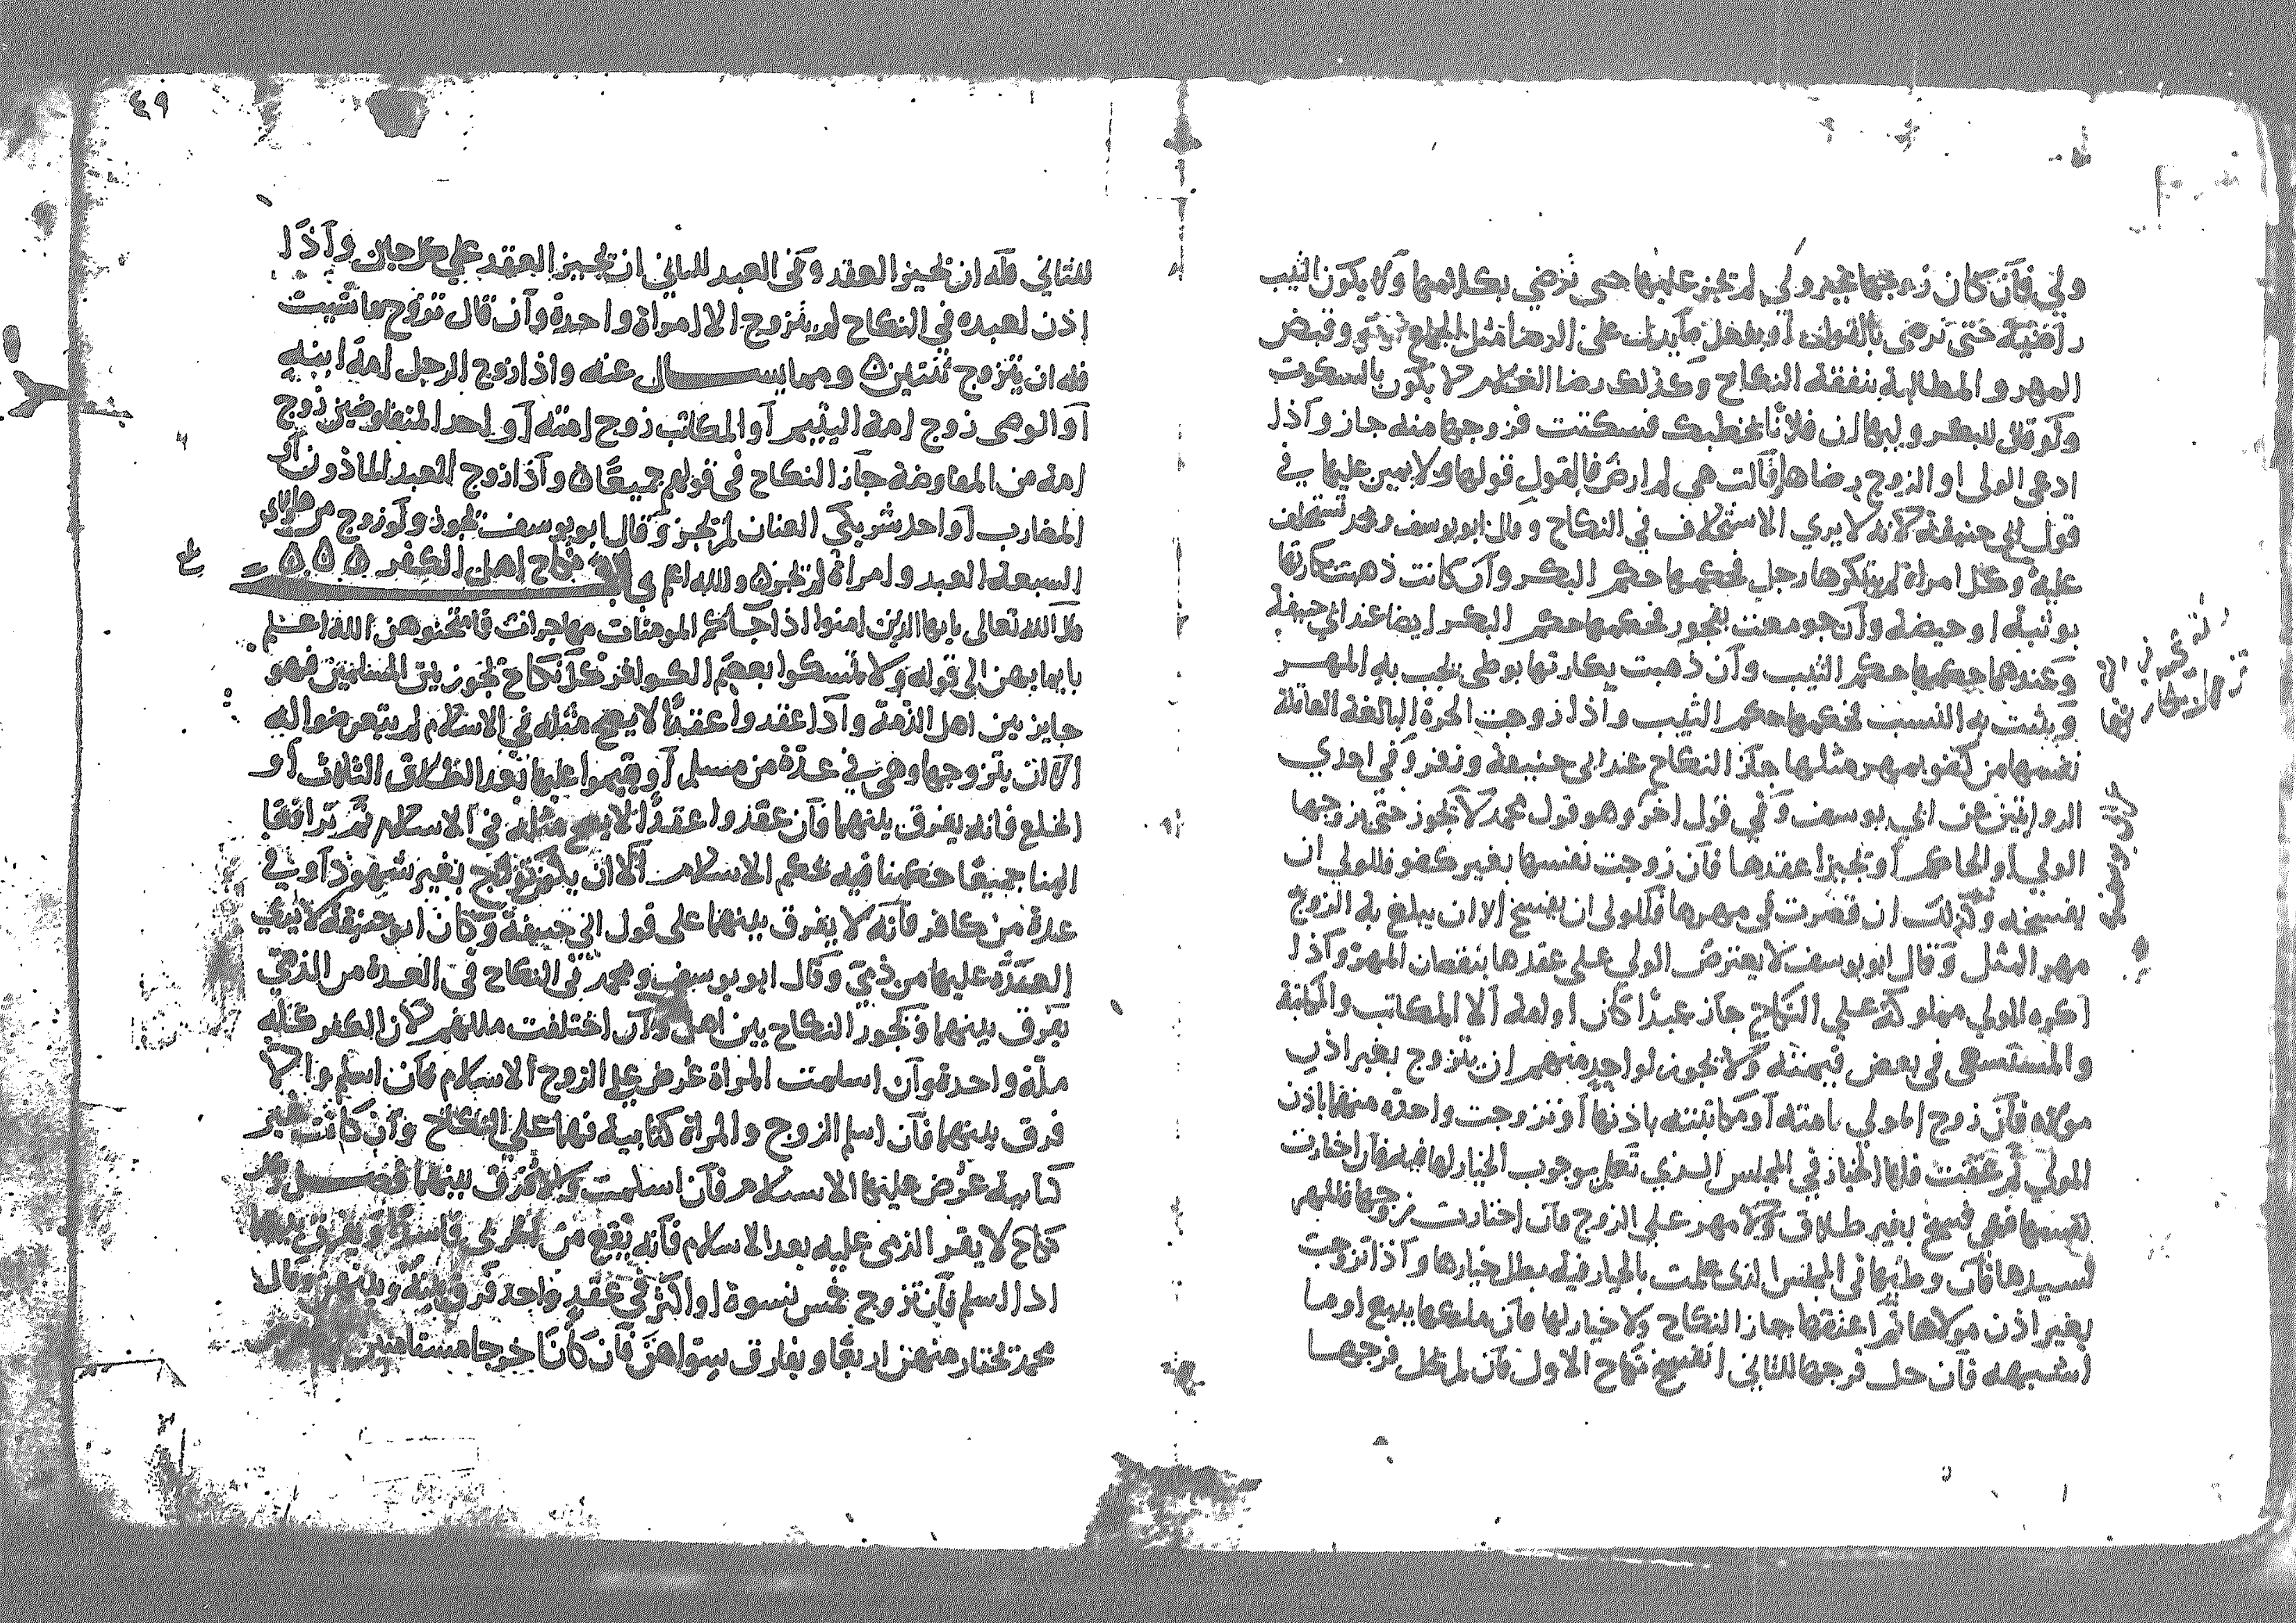 ولي فان كان زوجها غير ولي لم يجز عليها حتى ترضي بكلامها ولا يكون الثيب
راضية حتى ترضى بالقول او بفعل ما يدل على الرضا مثل الجماع وقبض
المهر والمطالبة بنفقة النكاح وكذلك رضا الغلام لا يكون بالسكوت
ولو قال للبكر وليها ان فلانا يخطبك فسكتت فزوجها منه جاز واذا
ادعى الولى او الزوج رضاها وقالت هي لم ارض فالقول قولها ولا يمين عليها في
قول ابي حنيفة لانه لا يري الاستحلاف في النكاح وقال ابو يوسف ومحمد تستحلف
عليه وكل امراة لم يبتكرها رجل فحكمها حكم البكر وان كانت ذهبت بكارتها
بوثبة او حيضة وان جومعت بفجور فحكمها حكم البكر ايضا عند ابي حنيفة
وعندهما حكمها حكم الثيب وان ذهبت بكارتها بوطى يجب به المهر
ويثبت به النسب فحكمها حكم الثيب واذا زوجت الحرة البالغة العاقلة
نفسها من كفو بمهر مثلها جاز النكاح عند ابى حنيفة وزفر وفي احدي
الروايتين عن ابي يوسف وفي قول اخر وهو قول محمد لا يجوز حتى يزوجها
الولي او الحاكم او تجيزا عقدها فان زوجت نفسها بغير كفو فللولي ان
يفسخه وكذلك ان قصرت في مهرها فللولى ان يفسخ الا ان يبلغ به الزوج
مهر المثل وقال ابو يوسف لا يعترض الولي على عقدها بنقصان المهر واذا
اكره المولي مملوكه علي النكاح جاز عبدا كان او امة الا المكاتب والمكاتبة
والمستسعى في بعض قيمته ولا يجوز لواحد منهم ان يتزوج بغير اذن
مولاه فان زوج المولي امته او مكاتبته باذنها او تزوجت واحدة منهما باذن
المولي ثم عتقت فلها الخيار في المجلس الذي تعلم بوجوب الخيار لها فيه فان اختارت
نفسها فهى فسخ بغير طلاق ولا مهر علي الزوج فان اختارت زوجها فالمهر
لسيدها فان وطئها في المجلس الذى علمت بالخيار فيه بطل خيارها واذا تزوجت
بغير اذن مولاها ثم اعتقها جاز النكاح ولا خيار لها فان ملكها ببيع او ما
اشبهه فان حل فرجها للثاني انفسخ نكاح الاول فان لم يحل فرجها
٤٩
للثاني فله ان يجيز العقد وفى العبد للثاني ان يجيز العقد علي كل حال واذا
اذن لعبده في النكاح لم يتزوج الا امراة واحدة وان قال تزوج ما شيت
فله ان يتزوج ثنتين ٥ ومما يسال عنه واذا زوج الرجل امة ابنه
او الوصى زوج امة اليتيم او المكاتب زوج امته او احد المتفاوضين زوج
امة من المفاوضة جاز النكاح في قولهم جميعا ٥ واذا زوج العبد الماذون او
المضارب او احد شريكي العنان لم يجز وقال ابو يوسف يجوز ولو زوج من هولاى
السبعة العبد وامراة لم يجز ٥ والله اعلم باب نكاح اهل الكفر ٥ ٥ ٥
قال الله تعالى يا يها الذين امنوا اذا جاكم المومنات مهاجرات فامتحنوهن الله اعلم
بايمانهن الى قوله ولا تمسكوا بعصم الكوافر كل نكاح يجوز بين المسلمين فهو
جايز بين اهل الذمة واذا عقدوا عقدا لا يصح مثله في الاسلام لم يتعرضوا له
الا ان يتزوجها وهى في عدة من مسلم او يقيموا عليها بعد الطلاق الثلاث او
الخلع فانه يفرق بينهما فان عقدوا عقدا لا يصح مثله في الاسلام ثم ترافعا
الينا جميعا حكمنا فيه بحكم الاسلام الا ان يكون تزوج بغير شهود او في
عدة من كافر فانه لا يفرق بينهما على قول ابي حنيفة وكان ابو حنيفة لا يري
العدة عليها من ذمي وقال ابو يوسف ومحمد في النكاح في العدة من الذمي
يفرق بينهما ويجوز النكاح بين اهل وان اختلفت مللهم لان الكفر كله
ملة واحدة وان اسلمت المراة عرض علي الزوج الاسلام فان اسلم والا
فرق بينهما فان اسلم الزوج والمراة كتابية فهما علي النكاح وان كانت غير
كتابية عرض عليها الاسلام فان اسلمت والا فرق بينهما فصل وكل
نكاح لا يقر الذمى عليه بعد الاسلام فانه يقع من الحربي فاسدا ويفرق بينهما
اذا اسلم فان تزوج خمس نسوة او اكثر في عقد واحد فرق بينه وبينهن وقال
محمد يختار منهن اربعا ويفارق سواهن فان كانا خرجا مستامنين